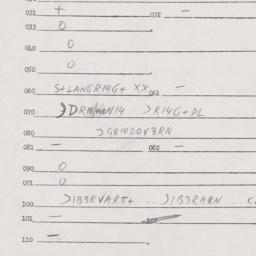 031 + 032 —
033 O
040 O
050 O
060 S+LANGR14G+ XX 061 —
070 N14 )R14G+DL
080 )G814DOV3RN
081 — 082 —
090 O
091 O
100 )1B3RVART+ .. )1B3RARN .. C.
101 —
110 —